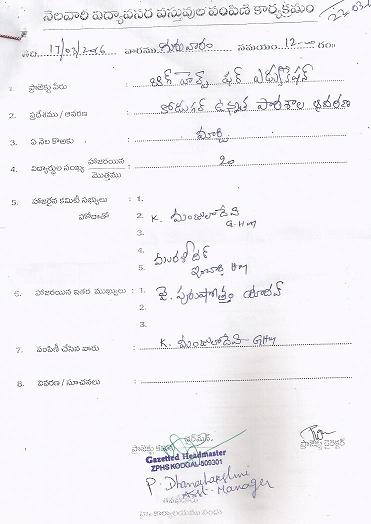 నెలవారి విద్యావసర వస్తువుల పంపిణి కార్యక్రమం
తేది. 17/03/2016 వారము గురువారం సమయం 12-00 గం॥
1. ప్రాజెక్టు పేరు : బిగ్ హెల్ప్ ఫర్ ఎడ్యుకేషన్
2. ప్రదేశము / ఆవరణ : కోడుగల్ ఉన్నత పాఠశాల ఆవరణ
3. ఏ నెల కొఱకు : మార్చి
4. విద్యార్థుల సంఖ్య హాజరయిన / మొత్తము : 20
5. హాజరైన కమిటీ సభ్యులు : 1.
హోదాతో 2. K. మంజులాదేవి
G-HM
3.
4. మురళీధర్
5. ఇంచార్జి HM
6. హాజరయిన ఇతర ముఖ్యులు : 1. జె. పురుషోత్తం యాదవ్
2.
3.
7. పంపిణీ చేసిన వారు : K. మంజులాదేవి GHM
8. వివరణ / సూచనలు :
ప్రాజెక్టు డైరెక్టర్
Gazetted Headmaster
ZPHS KODGAL-509301
P. Dhanalakshmi
Asst. Manager